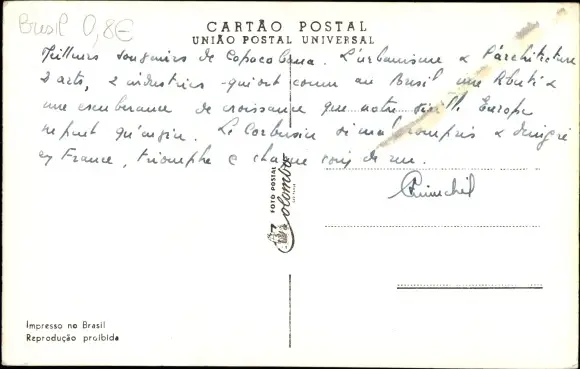 Brésil 0,8€
CARTÃO POSTAL
UNIÃO POSTAL UNIVERSAL
Meilleurs souvenirs de Copacabana. L'urbanisme & l'architecture
2 arts, 2 industries qui ont connu au Brésil une &
une exubérance de croissance que notre Europe
ne peut qu'envier. Le Corbusier si mal compris & dénigré
en France, triomphe à chaque coin de rue.
FOTO POSTAL
Colombo
Impresso no Brasil
Reprodução proibida